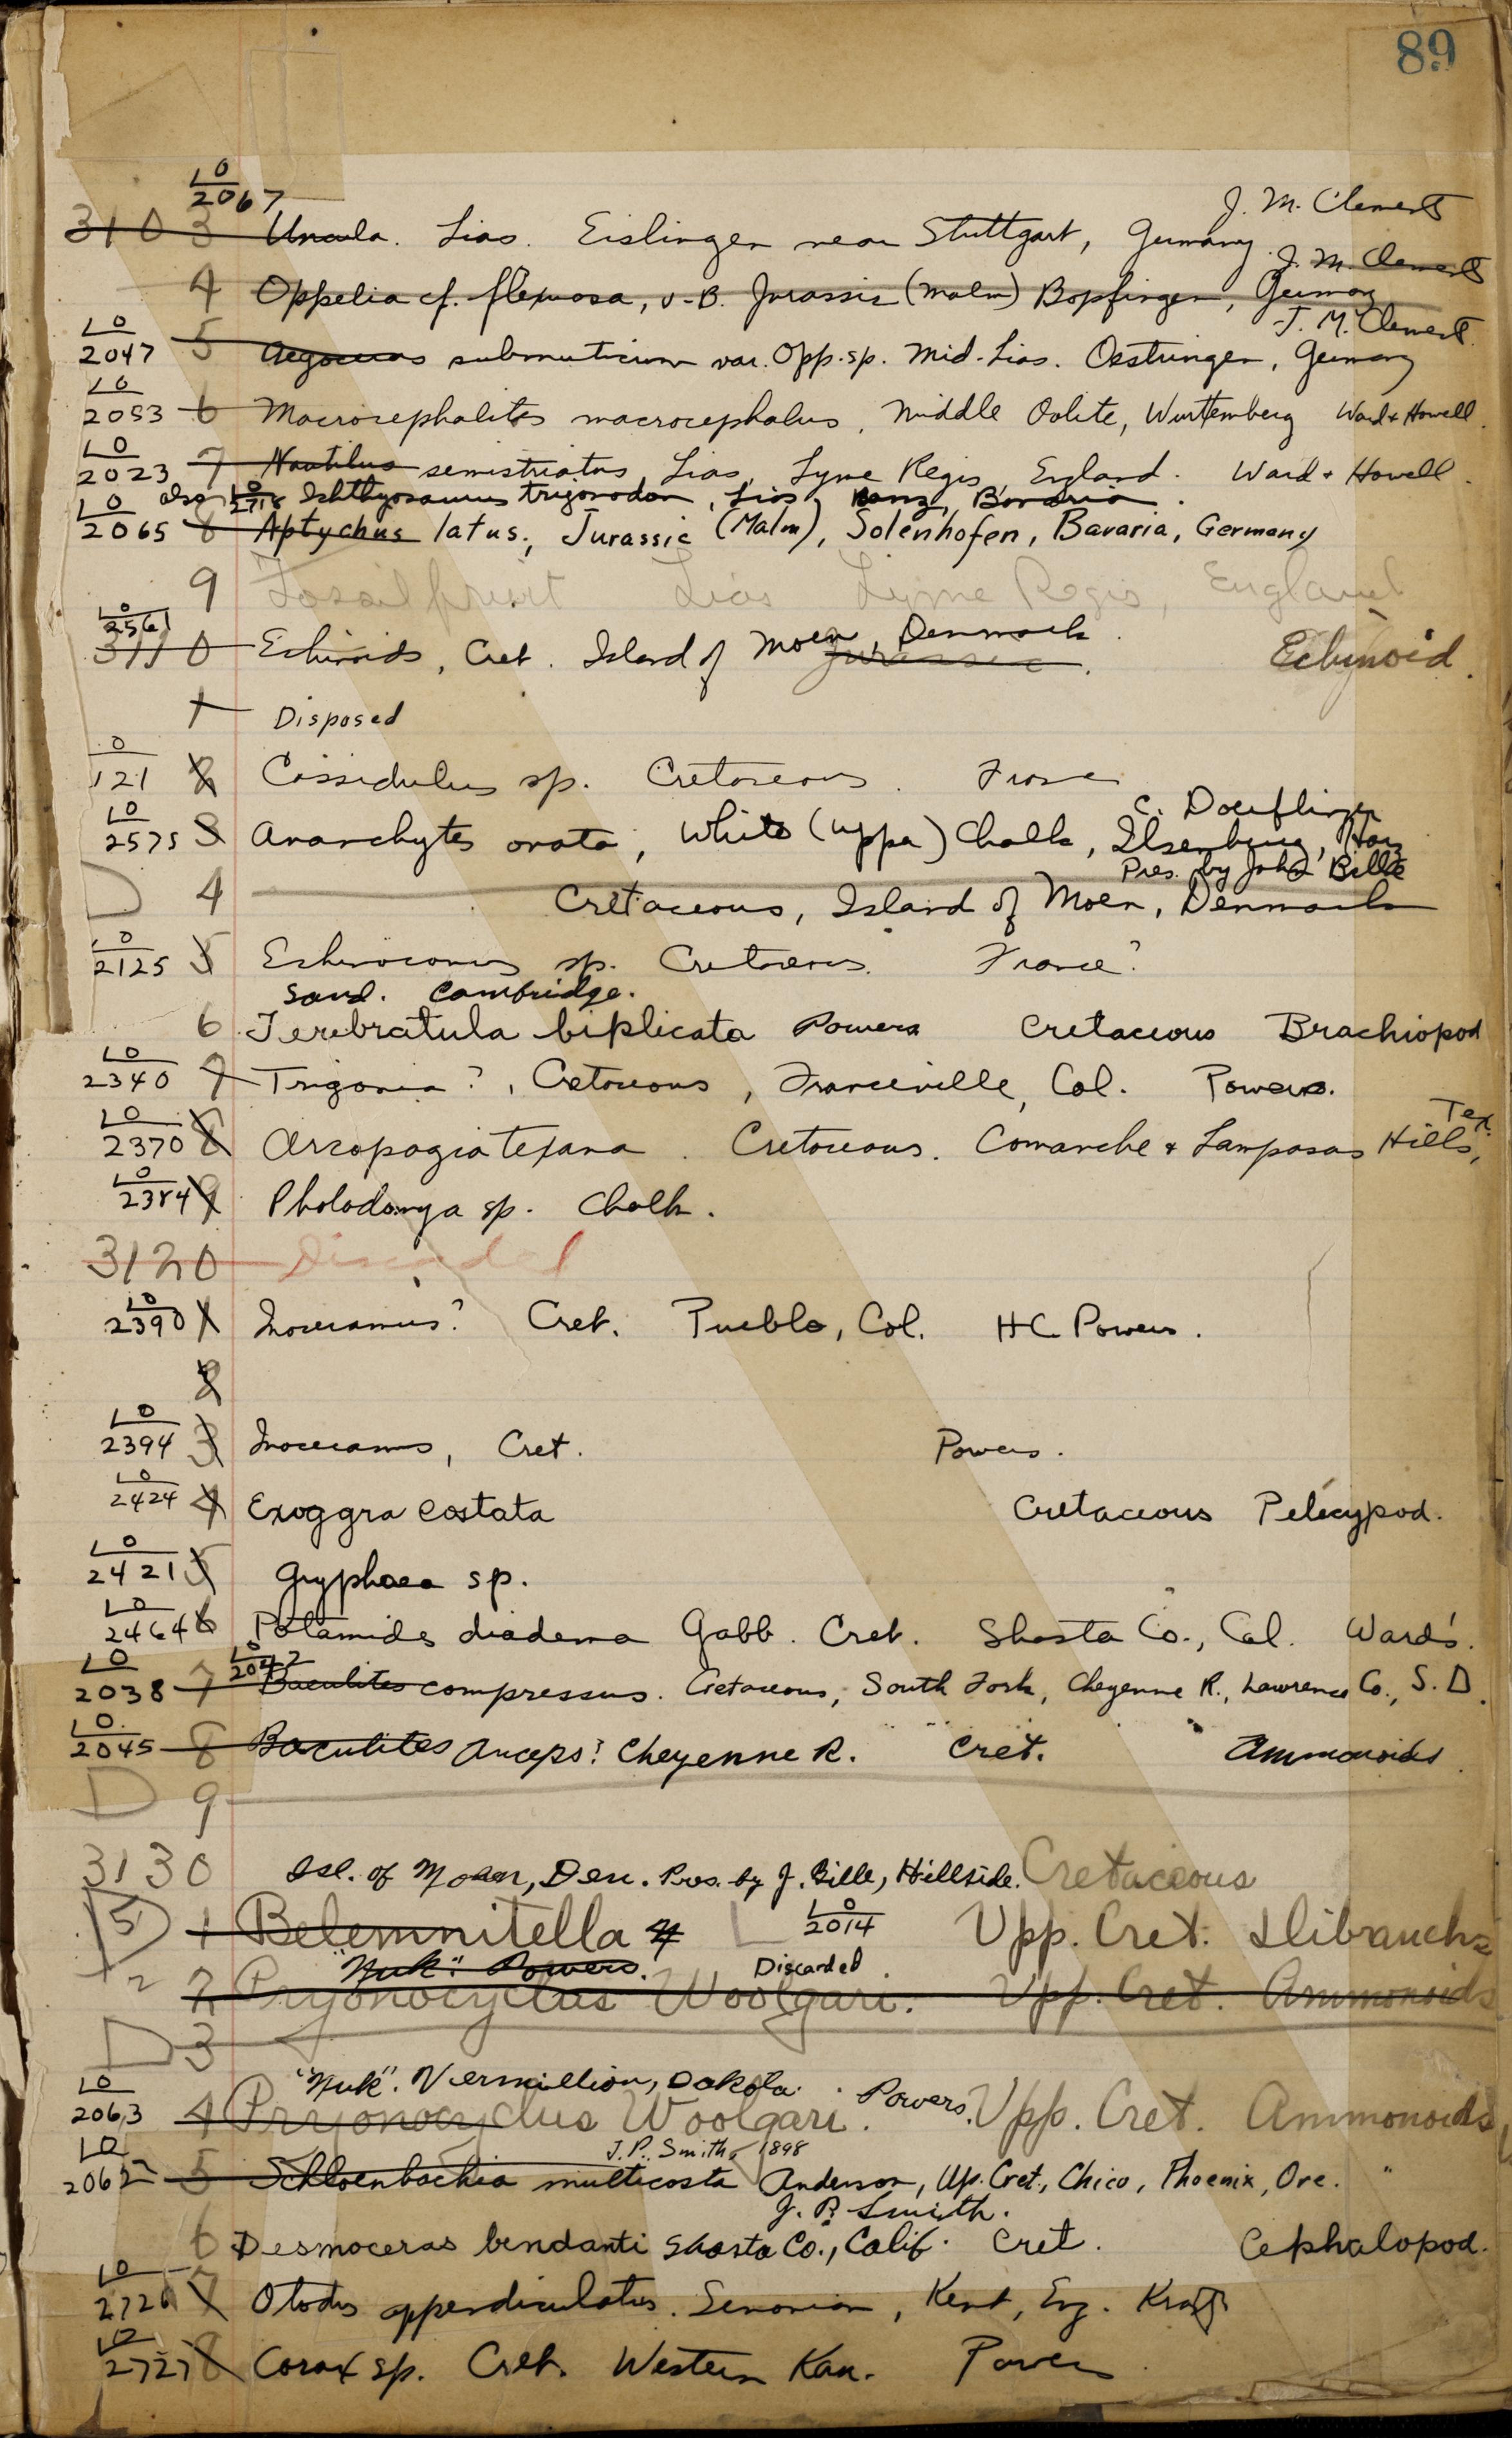 89
10
2067
J. M. Clements
3103 Uncula. Lias. Eislingen near Stuttgart, Germany.
J. M. Clements
4 Oppelia cf. flexuosa, v-B. Jurassic (Malm) Bopfingen, Germany
J. M. Clements
10
2047 5 Aegoceras submuticum var. Opp. sp. Mid. Lias. Oestringen, Germany
10
2053 6 Macrocephalites macrocephalus, Middle Oolite, Wurttemberg Ward & Howell
10
2023 7 Nautilus semistriatus Lias, Lyme Regis, England. Ward & Howell.
also Ichthyosaurus trigonodon, Lias, Banz, Bavaria.
10
2065 8 Aptychus latus., Jurassic (Malm), Solenhofen, Bavaria, Germany
9 Fossil Lias Lyme Regis, England
10
2561
3110 Echinoids, Cret. Island of Moen, Denmark. Jurassic. Echinoid.
1 Disposed
10
121 2 Cassidulus sp. Cretaceous. France
C. Doerflinger
10
2575 3 Ananchytes ovata, White (Upper) Chalk, Ilsenburg, Harz
Pres. by John Bille
D 4 Cretaceous, Island of Moen, Denmark
10
2125 5 Echinoconus sp. Cretaceous. France?
Sand. Cambridge.
6 Terebratula biplicata Powers Cretaceous Brachiopod
10
2340 7 Trigonia?, Cretaceous, Franceville, Col. Powers.
10
2370 8 Arcopagia texana. Cretaceous. Comanche & Lampasas Hills, Tex.
10
2384 9 Pholodomya sp. Chalk.
3120 Discarded
10
2390 1 Inoceramus? Cret. Pueblo, Col. H.C. Powers.
2
10
2394 3 Inoceramus, Cret. Powers.
10
2424 4 Exoggra costata Cretaceous Pelecypod.
10
2421 5 Gryphaea sp.
10
2464 6 Potamides diadema Gabb. Cret. Shasta Co., Cal. Ward's.
10
2042
10
2038 7 Baculites compressus. Cretaceous, South Fork, Cheyenne R., Lawrence Co., S. D.
10
2045 8 Baculites anceps? Cheyenne R. Cret. Ammonoids
D 9
3130 Isl. of Moen, Den. Pres. by J. Bille, Hillside. Cretaceous
D 1 Belemnitella 4 10
2014 Upp. Cret. Dibranchs
"Nuk". Powers. Discarded
2 Pryonocyclus Woolgari. Upp. Cret. Ammonoids
D 3
"Nuk". Vermillion, Dakota. Powers.
10
2063 4 Pryonocyclus Woolgari. Upp. Cret. Ammonoids
J. P. Smith, 1898
10
2062 5 Schloenbachia multicosta Anderson, Up. Cret., Chico, Phoenix, Ore. "
J. P. Smith.
6 Desmoceras bendanti Shasta Co., Calif. Cret. Cephalopod.
10
2726 7 Otodus appendiculatus. Senonian, Kent, Eng. Krantz
10
2727 8 Corax sp. Cret. Western Kan. Powers